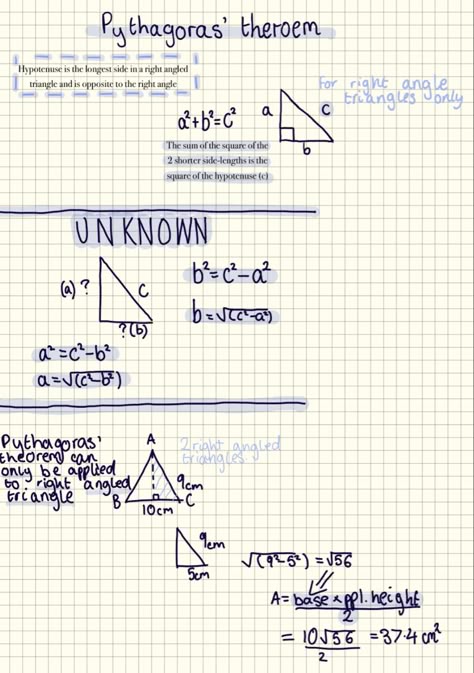 Pythagoras' theroem
Hypotenuse is the longest side in a right angled
triangle and is opposite to the right angle
For right angle
triangles only
a
c
b
a²+b²=c²
The sum of the square of the
2 shorter side-lengths is the
square of the hypotenuse (c)
UNKNOWN
(a) ?
c
?(b)
b²=c²-a²
b=√(c²-a²)
a²=c²-b²
a=√(c²-b²)
Pythagoras'
theorem can
only be applied
to right angled
triangle
A
B
C
9cm
10cm
2 right angled
triangles
9cm
5cm
√(9²-5²) = √56
A= base × ppl. height
2
= 10√56 = 37.4 cm²
2